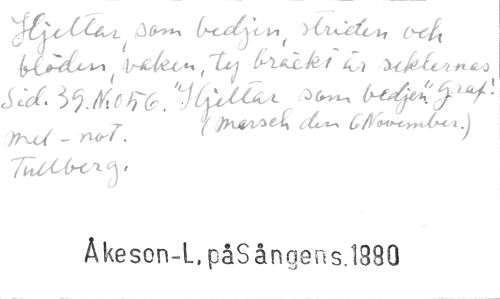 Hjeltar, som bedjen, striden och
blöden, vaken, ty bräckt är seklernas
Sid. 39. No 56. "Hjeltar som bedjen" Graf!
met - not. (marsch den 6 November.)
Tullberg.
Åkeson-L, på Sångens. 1880